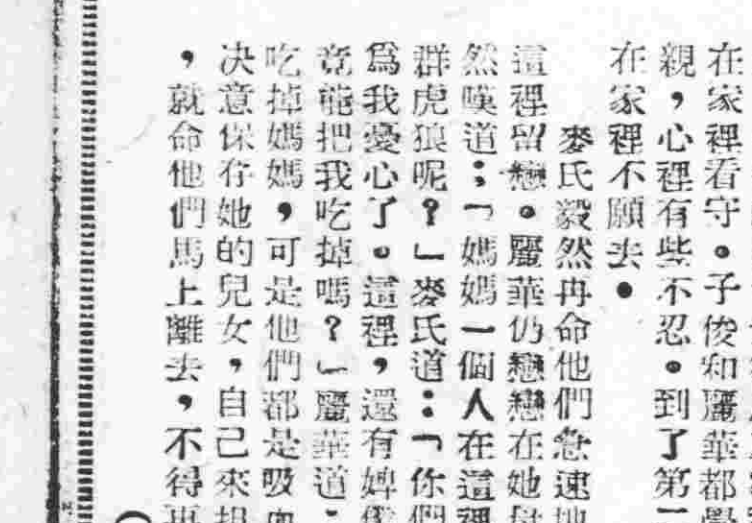 在家裡看守。子俊和麗華都
親，心裡有些不忍。到了第
在家裡不願去。
麥氏毅然再命他們急速地
這裡留戀。麗華仍戀戀在她母
然嘆道：「媽媽一個人在這裡
群虎狼呢？」麥氏道：「你們
爲我憂心了。這裡，還有婢僕
竟能把我吃掉嗎？」麗華道：
吃掉媽媽，可是他們都是吸血
决意保存她的兒女，自己來担
，就命他們馬上離去，不得再